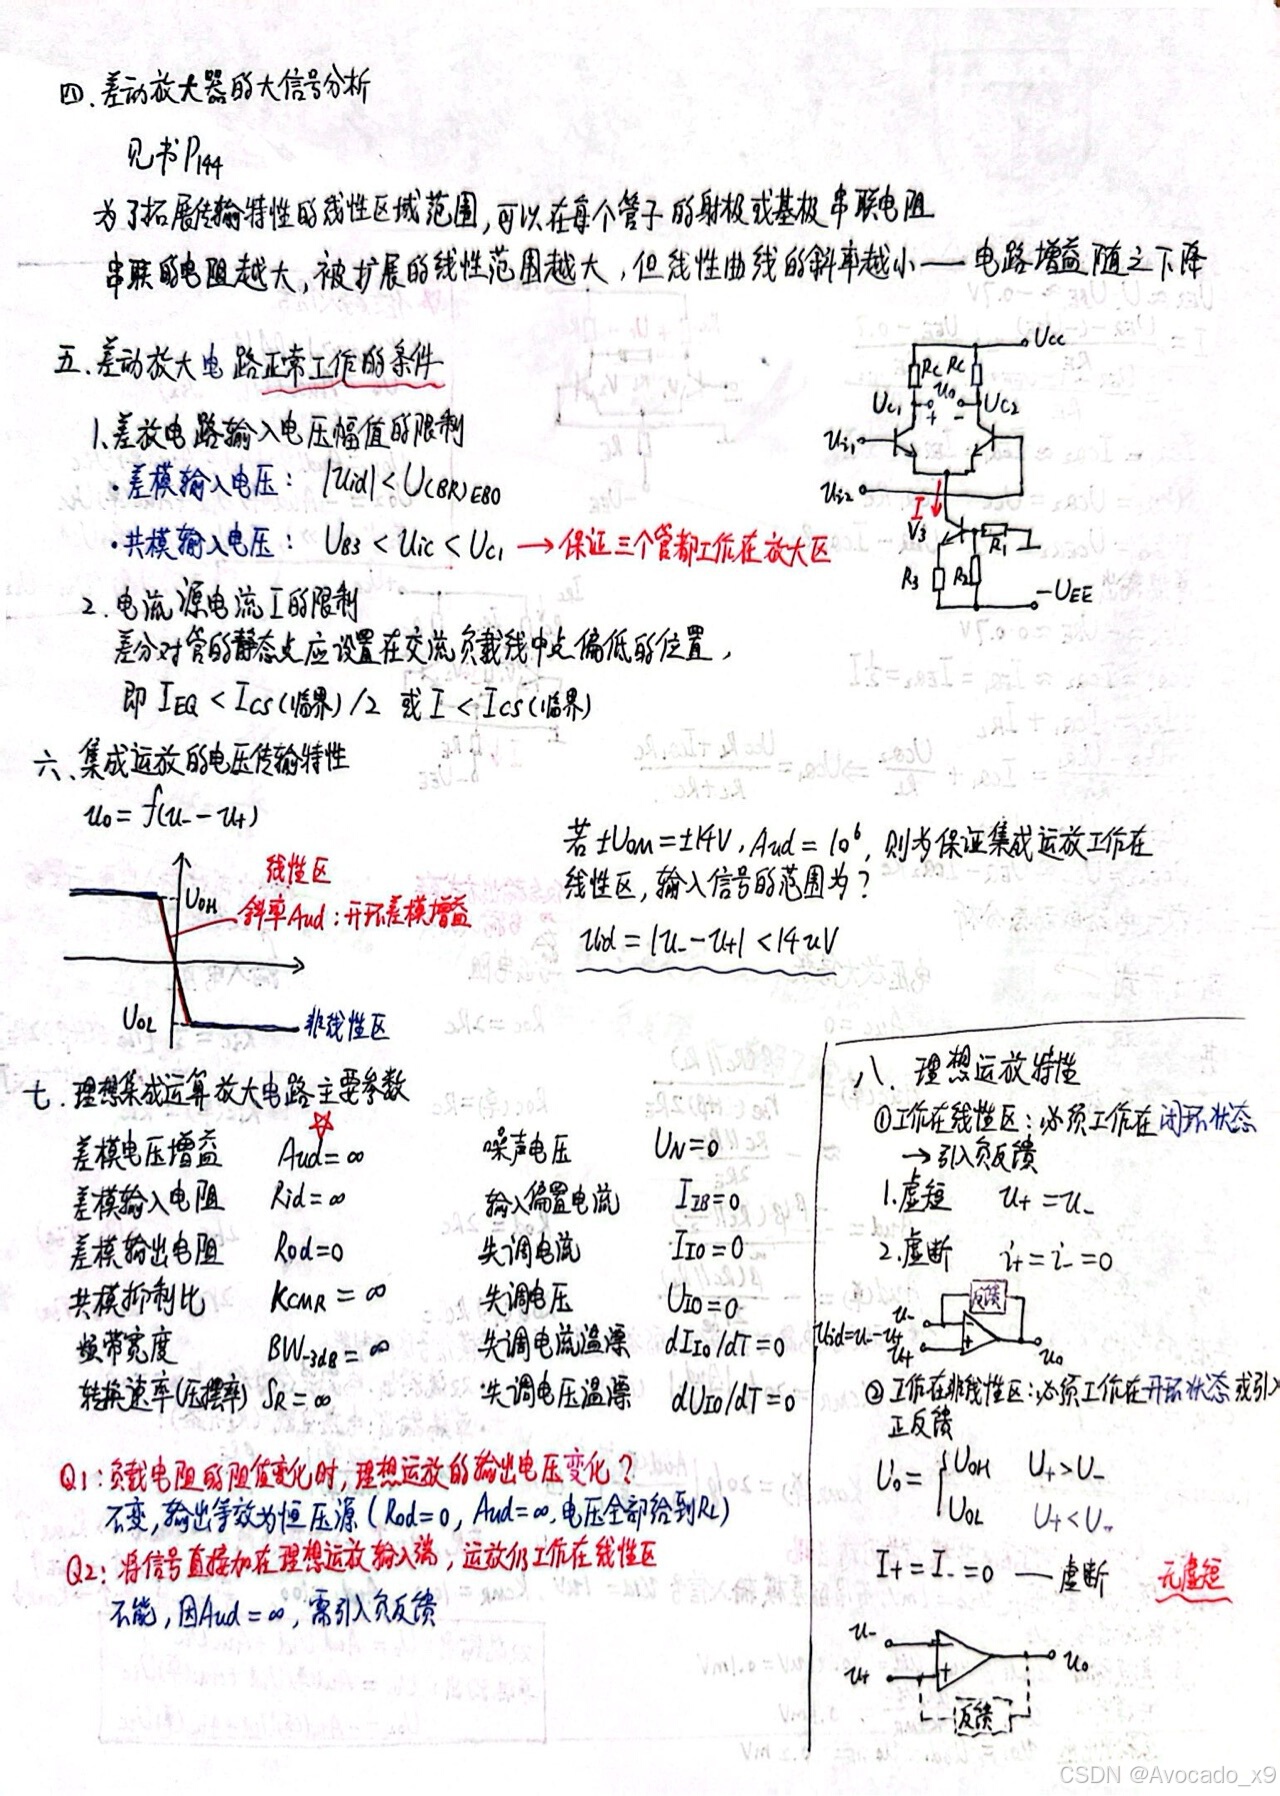 四. 差动放大器的大信号分析
见书P144
为了拓展传输特性的线性区域范围,可以在每个管子的射极或基极串联电阻
串联的电阻越大,被扩展的线性范围越大,但线性曲线的斜率越小——电路增益随之下降
五. 差动放大电路正常工作的条件
1.差放电路输入电压幅值的限制
·差模输入电压: |Uid|<U(BR)EBO
·共模输入电压: UB3<Uic<UC1 →保证三个管都工作在放大区
Ucc
Rc Rc
Uc1 + uo - Uc2
Ui1
Ui2
I
V3
R1
R3 R2
-UEE
2. 电流源电流I的限制
差分对管的静态点应设置在交流负载线中点偏低的位置,
即 IEQ<Ics(临界)/2 或 I<Ics(临界)
六、集成运放的电压传输特性
uo=f(u- - u+)
线性区
UOH
斜率Aud:开环差模增益
UOL
非线性区
若±UOM=±14V, Aud=10⁶, 则为保证集成运放工作在
线性区,输入信号的范围为?
uid=|u- - u+|<14uV
七. 理想集成运算放大电路主要参数
差模电压增益 Aud=∞ 噪声电压 UN=0
差模输入电阻 Rid=∞ 输入偏置电流 IIB=0
差模输出电阻 Rod=0 失调电流 IIO=0
共模抑制比 KCMR=∞ 失调电压 UIO=0
频带宽度 BW-3dB=∞ 失调电流温漂 dIIO/dT=0
转换速率(压摆率) SR=∞ 失调电压温漂 dUIO/dT=0
Q1:负载电阻的阻值变化时,理想运放的输出电压变化?
不变,输出等效为恒压源(Rod=0, Aud=∞,电压全部给到RL)
Q2:将信号直接加在理想运放输入端,运放仍工作在线性区
不能,因Aud=∞,需引入负反馈
八. 理想运放特性
①工作在线性区:必须工作在闭环状态
→引入负反馈
1.虚短 u+=u-
2.虚断 i+=i-=0
反馈
u-
uid=u- - u+
u+
uo
②工作在非线性区:必须工作在开环状态或引入
正反馈
Uo={UOH U+>U-
UOL U+<U-
I+=I-=0 ——虚断 无虚短
u-
u+
uo
反馈
CSDN @Avocado_x9